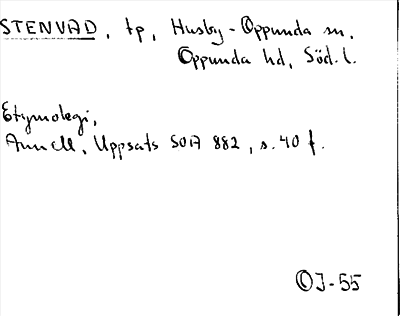 STENVAD, tp, Husby-Oppunda sn,
Oppunda hd, Söd. l.
Etymologi,
Ann ell, Uppsats SOA 882, s. 40 f.
OJ-55